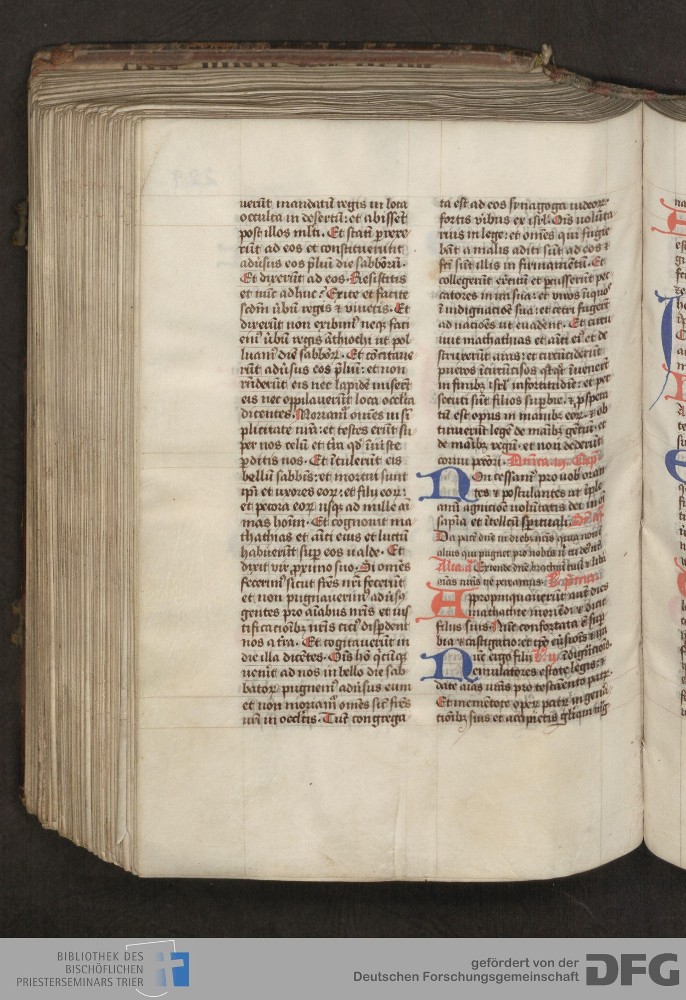 uerūt mandatū regis in loca
occulta in desertū: et abisset
post illos mlti. Et statī prexe
rūt ad eos et constituerunt
adūsus eos pliū die sabborū.
Et dixerūt ad eos. Resistitis
et nūc adhuc? Exite et facite
scdm ūbū regis et viuetis. Et
dixerūt non exibimꝰ neqꝫ faci
emꝰ ūbū regis āthiochi ut pol
luamꝰ diē sabborꝝ. Et cōcitaue
rūt adūsus eos pliū: et non
rn̄derūt eis nec lapidē miserūt
eis nec oppilauerūt loca occlta
dicentes. Moriamꝰ oīnes in sī
plicitate nrā: et testes erūt su
per nos celū et tr̄a qd̓ īniste
ꝑditis nos. Et ītulerūt eis
bellū sabbīs: et mortui sunt
ip̄i et uxores eorꝝ: et filij eorꝝ:
et pecora eorꝝ usqꝫ ad mille ai
mas hoīm. Et cognouit ma
thathias et aīci eius et luctū
habuerūt suꝑ eos ualde. Et
dixit vir ꝓximo suo. Si omēs
fecerimꝰ sicut frēs nrī fecerūt
et non pugnauerimꝰ adūsꝰ
gentes pro aīabus nrīs et ius
tificationibꝫ nrīs citiꝰ disꝑdent
nos a tr̄a. Et cogitauerūt in
die illa dicētes. Oīs hō qͥcūqꝫ
uenit ad nos in bello die sab
batorꝝ pugnemꝰ adūsus eum
et non moriamꝰ omēs sic̄ frēs
nrī in occltis. Tūc congrega
ta est ad eos synagoga iudeorꝝ
fortis viribus ex isrl. Oīs volūta
rius in lege: et omēs qui fugie
bāt a malis aditi sūt ad eos et
fcī sūt illis in firmamētū. Et
collegerūt exercitū et ꝑcusserūt pec
catores in ira sua: et viros iniquos
ī indignacioē sua: et ceteri fugerūt
ad nacioēs ut euadent. Et circu
iuit mathathias et aīci eiꝰ et de
struxerūt aras: et circūciderūt
pueros īcircūcisos qͦtqͦt īuenerūt
in finibꝫ isrl in fortitudine: et per
secuti sūt filios superbie. et ꝓspera
tū est opus in manibꝫ eorꝝ. et ob
tinuerūt legē de manibꝫ gentiū: et
de manibꝫ regū: et non dederūt
cornu peccori. Dnica iij. Capl
Non cessamꝰ pro vob oran
tes et postulantes ut īple
amī agnicioē volūtatis dei in oī
sapia et ītellcū spirituali.
Da pacē dn̄e in diebꝫ nrīs quia non ē
alius qui pugnet pro nobis nisi tu deꝰ nr̄
Alia a Extende dn̄e brachiū tuū et libera
aīas nrās ne pereamus.
Appropinquauerūt aūt dies
mathathie moriendi et dixit
filijs suis. Nūc confortata ē suꝑ
bia et castigatio: et tꝑs euersiōis et ira
indignaciōis. Nūc ergo filij
emulatores estote legis: et
date aīas vrās pro testamēto patrū.
Et mementote operū patrū in genera
tionibꝫ suis et accipietis gliam mag
BIBLIOTHEK DES
BISCHÖFLICHEN
PRIESTERSEMINARS TRIER
gefördert von der
Deutschen Forschungsgemeinschaft
DFG